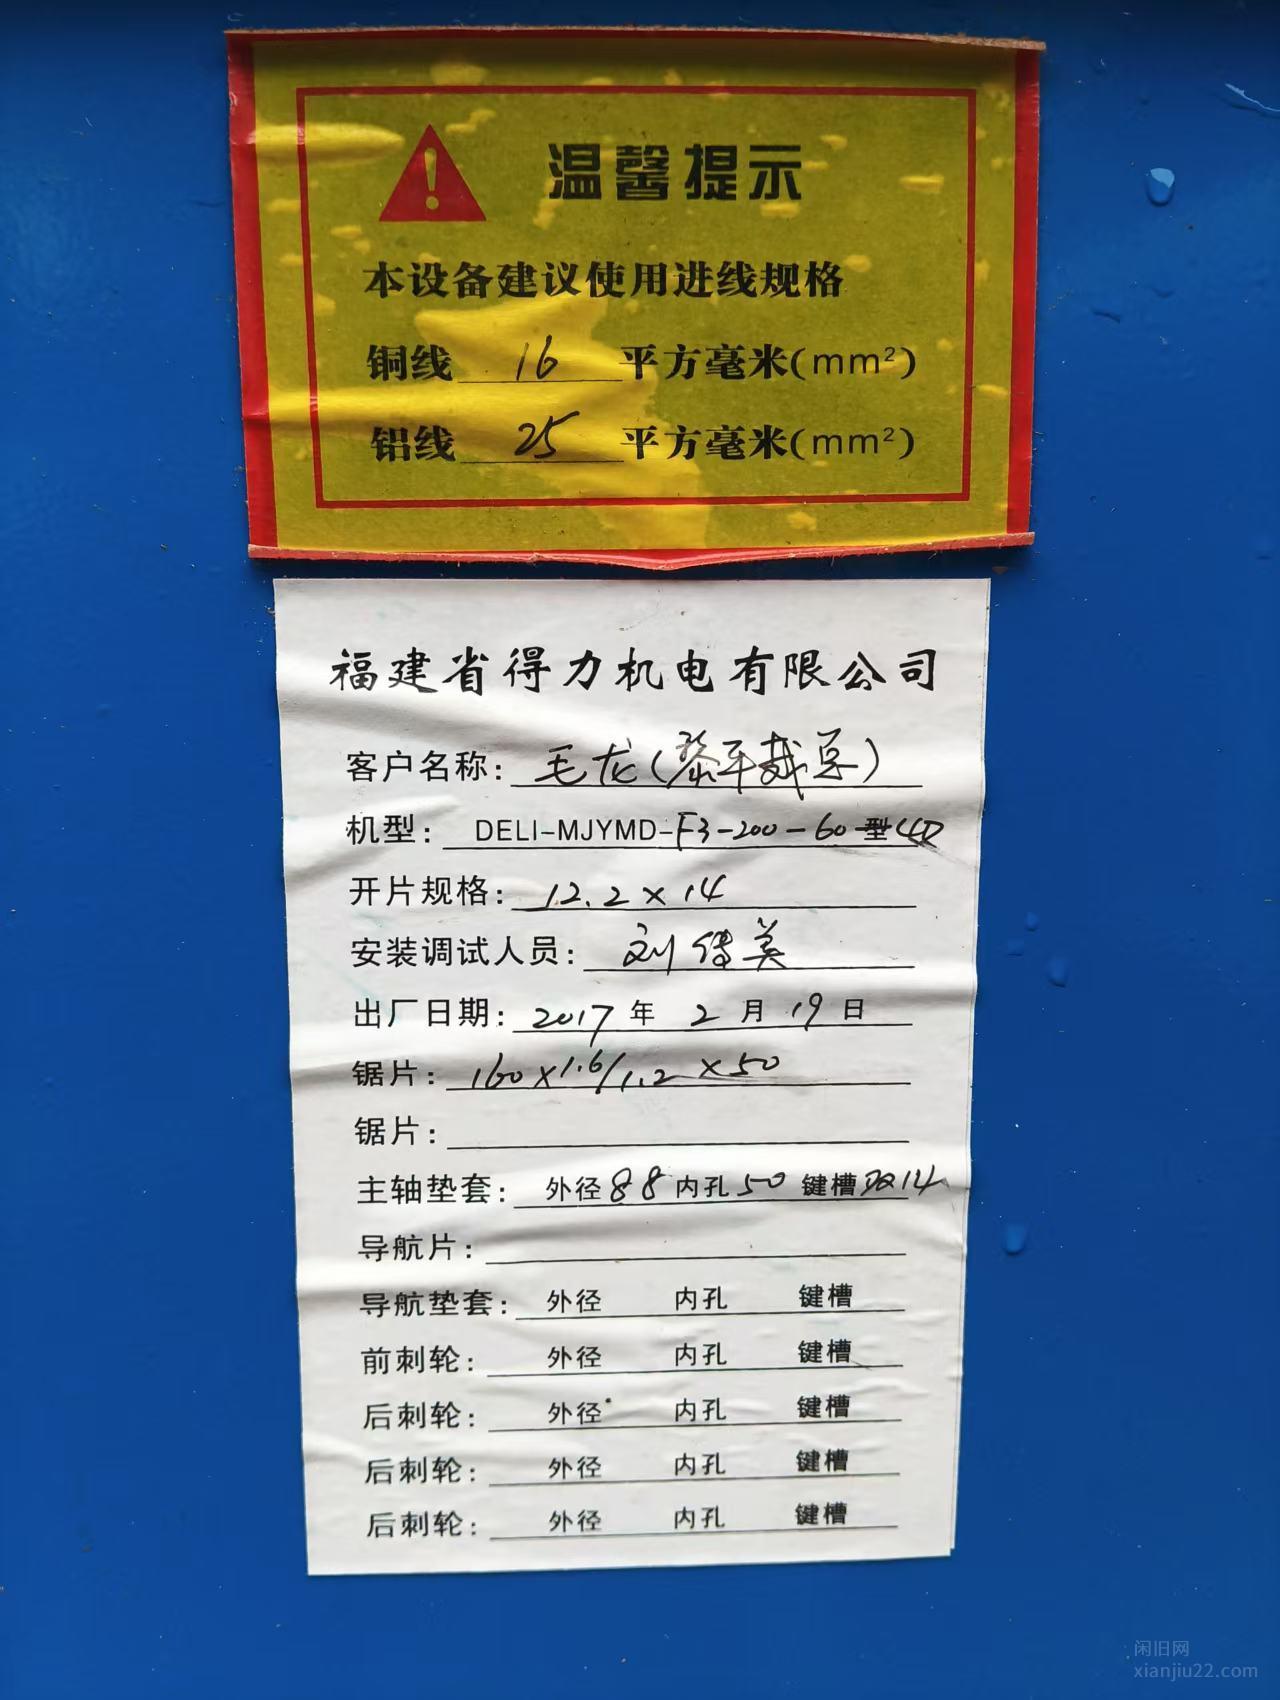 温馨提示
本设备建议使用进线规格
铜线 16 平方毫米(mm²)
铝线 25 平方毫米(mm²)
福建省得力机电有限公司
客户名称: 毛龙(黎平
机型: DELI-MJYMD-F3-200-60型
开片规格: 12.2×14
安装调试人员: 刘传英
出厂日期: 2017年 2月19日
锯片: 160×1.6/1.2×50
锯片:
主轴垫套: 外径88内孔50 键槽双14
导航片:
导航垫套: 外径 内孔 键槽
前刺轮: 外径 内孔 键槽
后刺轮: 外径 内孔 键槽
后刺轮: 外径 内孔 键槽
后刺轮: 外径 内孔 键槽
闲旧网
xianjiu22.com